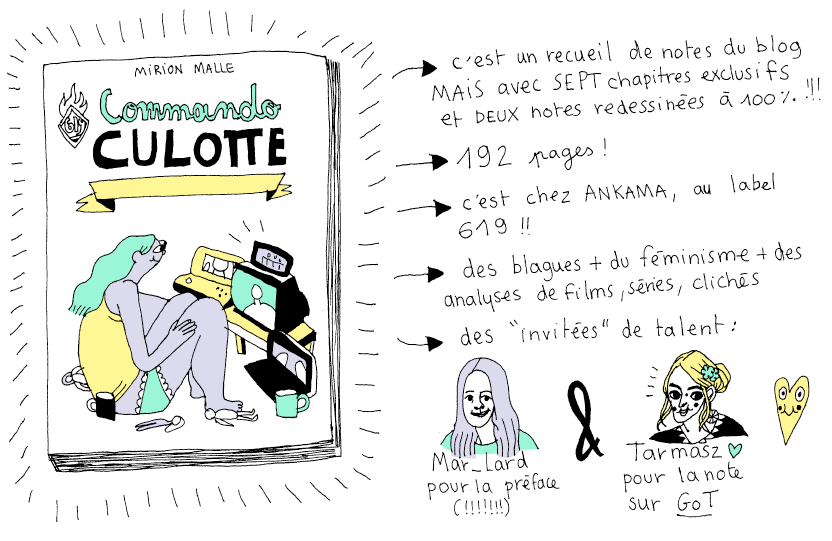 MIRION MALLE
Commando
CULOTTE
619
c'est un recueil de notes du blog
MAIS avec SEPT chapitres exclusifs
et DEUX notes redessinées à 100%. !!!
192 pages !
c'est chez ANKAMA, au label
619 !!
des blagues + du féminisme + des
analyses de films, séries, clichés
des "invitées" de talent :
Mar_Lard
pour la préface
(!!!!!!!)
&
Tarmasz
pour la note
sur GoT